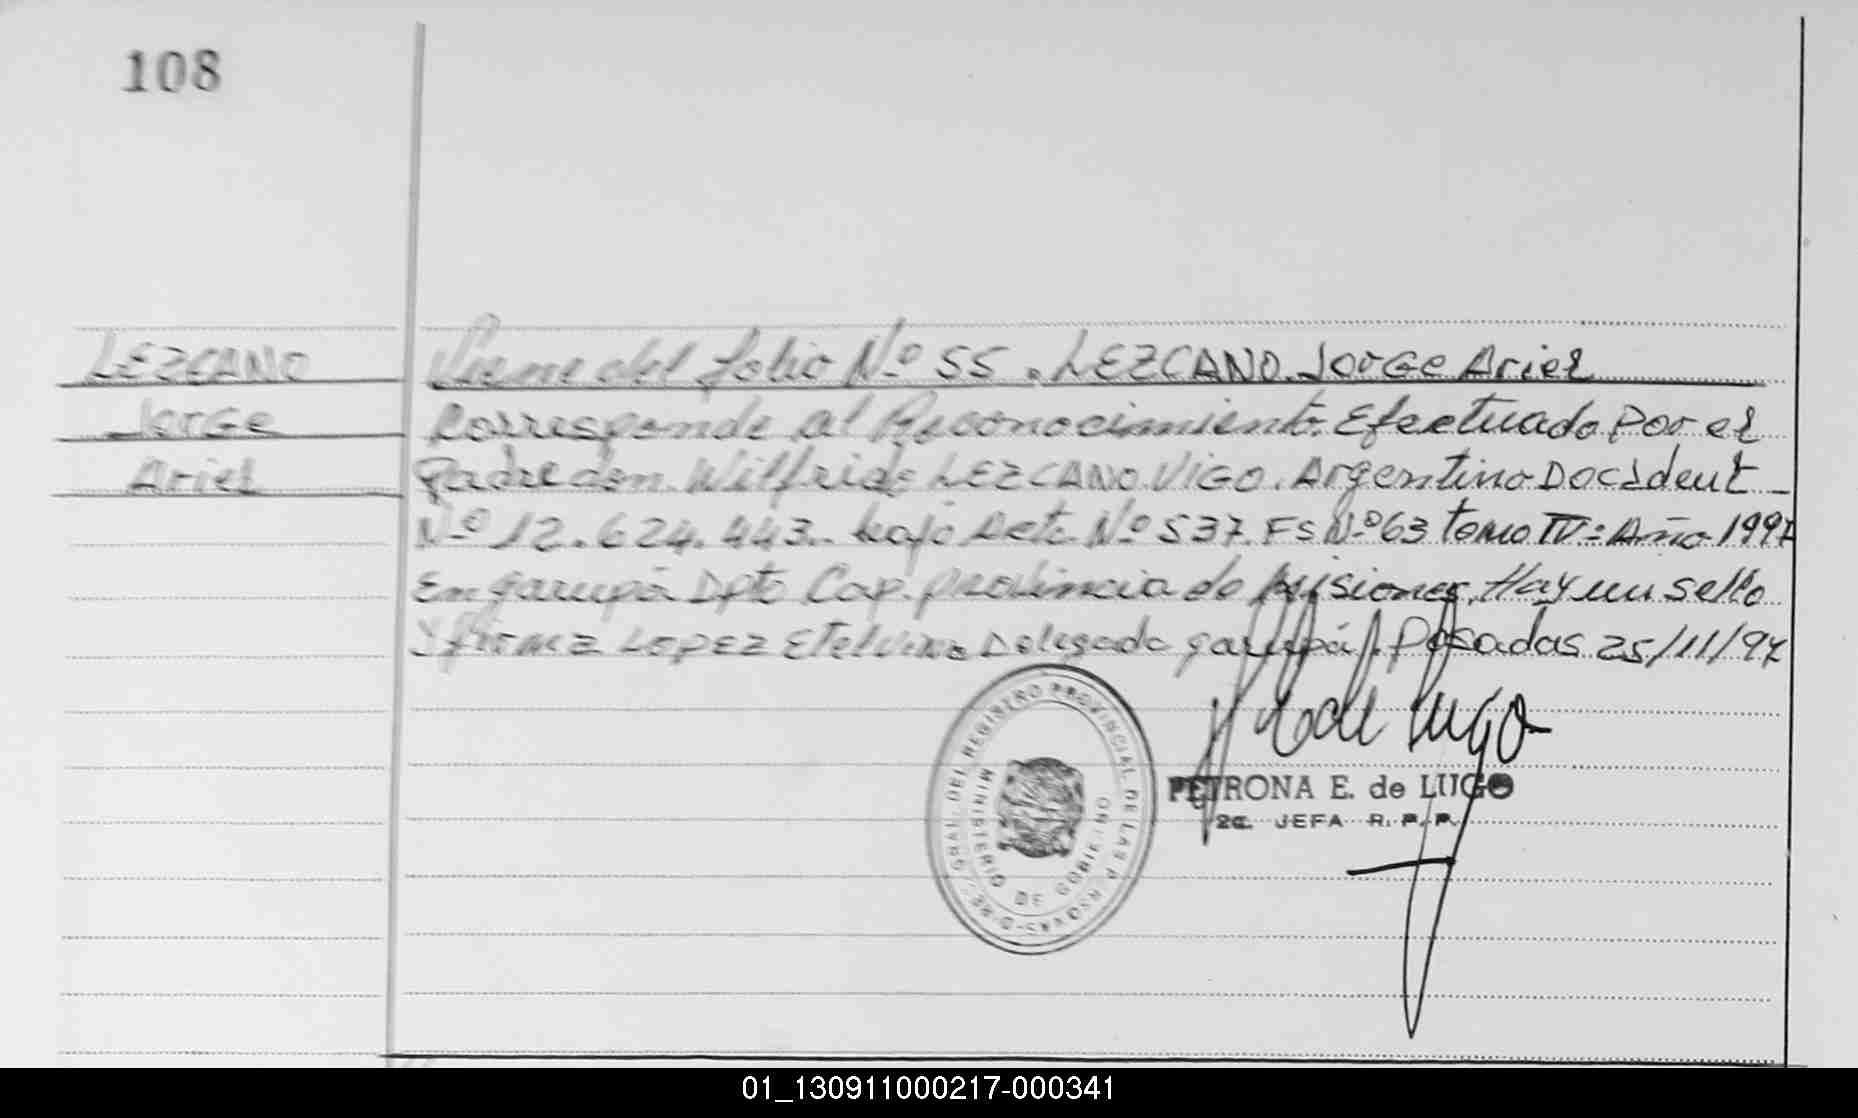 108
LEZCANO
Jorge
Ariel
Viene del folio Nº 55. LEZCANO Jorge Ariel
Corresponde al Reconocimiento Efectuado Por el
Padre don Wilfrido LEZCANO VIGO. Argentino Doc Ident
Nº 12.624.443.. bajo Acta Nº 537 FS Nº 63 tomo IV = Año 1997
En garupá Dpto Cap. provincia de Misiones. Hay un sello
Y firma LOPEZ Etelvina Delegada garupá. Posadas 25/11/97
de Lugo
PETRONA E. de LUGO
2a. JEFA R. P. P.
GRAL. DEL REGISTRO PROVINCIAL DE LAS PERSONAS
MINISTERIO DE GOBIERNO
01_130911000217-000341